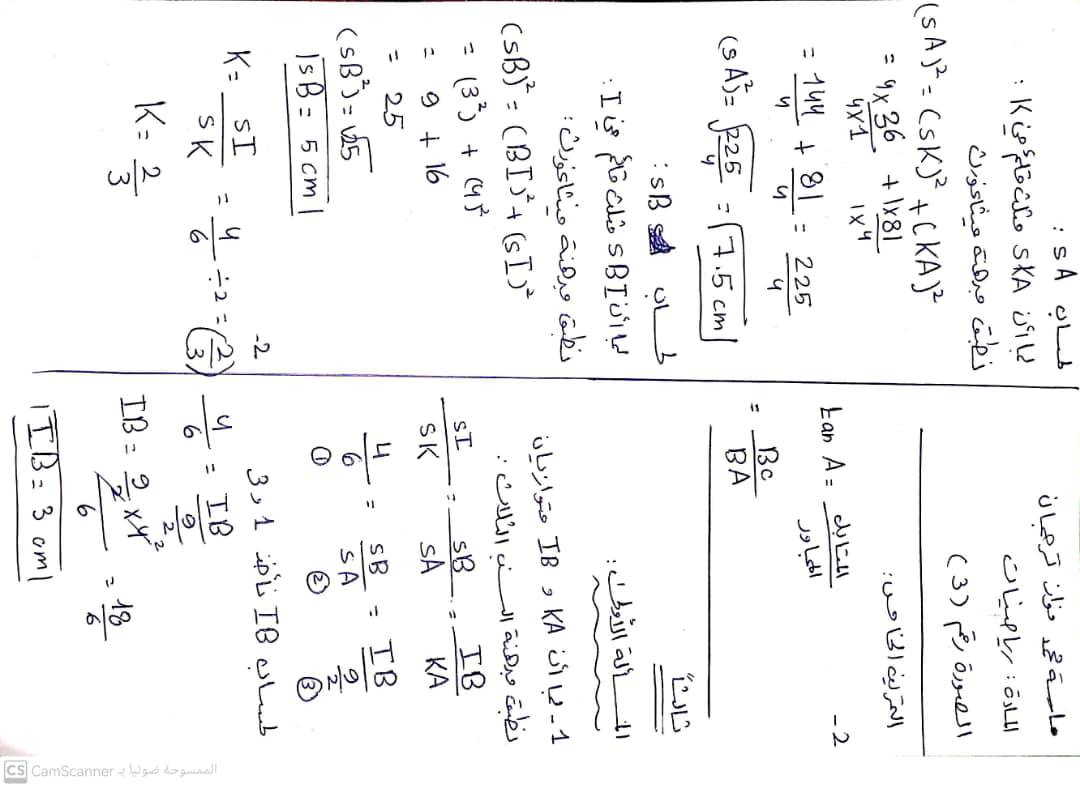 ماسة محمد فواز ترجمان
المادة : رياضيات
الصورة رقم (3)
التمرين الخامس :
2-
tan A = المقابل / المجاور
= BC / BA
ثالثاً
المسألة الأولى :
1- بما أن KA و IB متوازيان
نطبق مبرهنة النسب الثلاث :
SI / SK = SB / SA = IB / KA
4 / 6 = SB / SA = IB / 9/2
① ② ③
لحساب IB نأخذ 1 و 3
4 / 6 = IB / 9/2
IB = 9/2 × 4² / 6 = 18 / 6
IB = 3 cm
لحساب SA :
بما أن SKA مثلث قائم في K :
نطبق مبرهنة فيثاغورث
(SA)² = (SK)² + (KA)²
= 4×36 / 4×1 + 1×81 / 1×4
= 144 / 4 + 81 / 4 = 225 / 4
(SA)² = √225/4 = 7.5 cm
لحساب SB :
بما أن SBI مثلث قائم في I :
نطبق مبرهنة فيثاغورث :
(SB)² = (BI)² + (SI)²
= (3²) + (4)²
= 9 + 16
= 25
(SB²) = √25
SB = 5 cm
2-
K = SI / SK = 4 / 6 ÷2 = (2 / 3)
K = 2 / 3
الممسوحة ضوئيا بـ CamScanner
CS